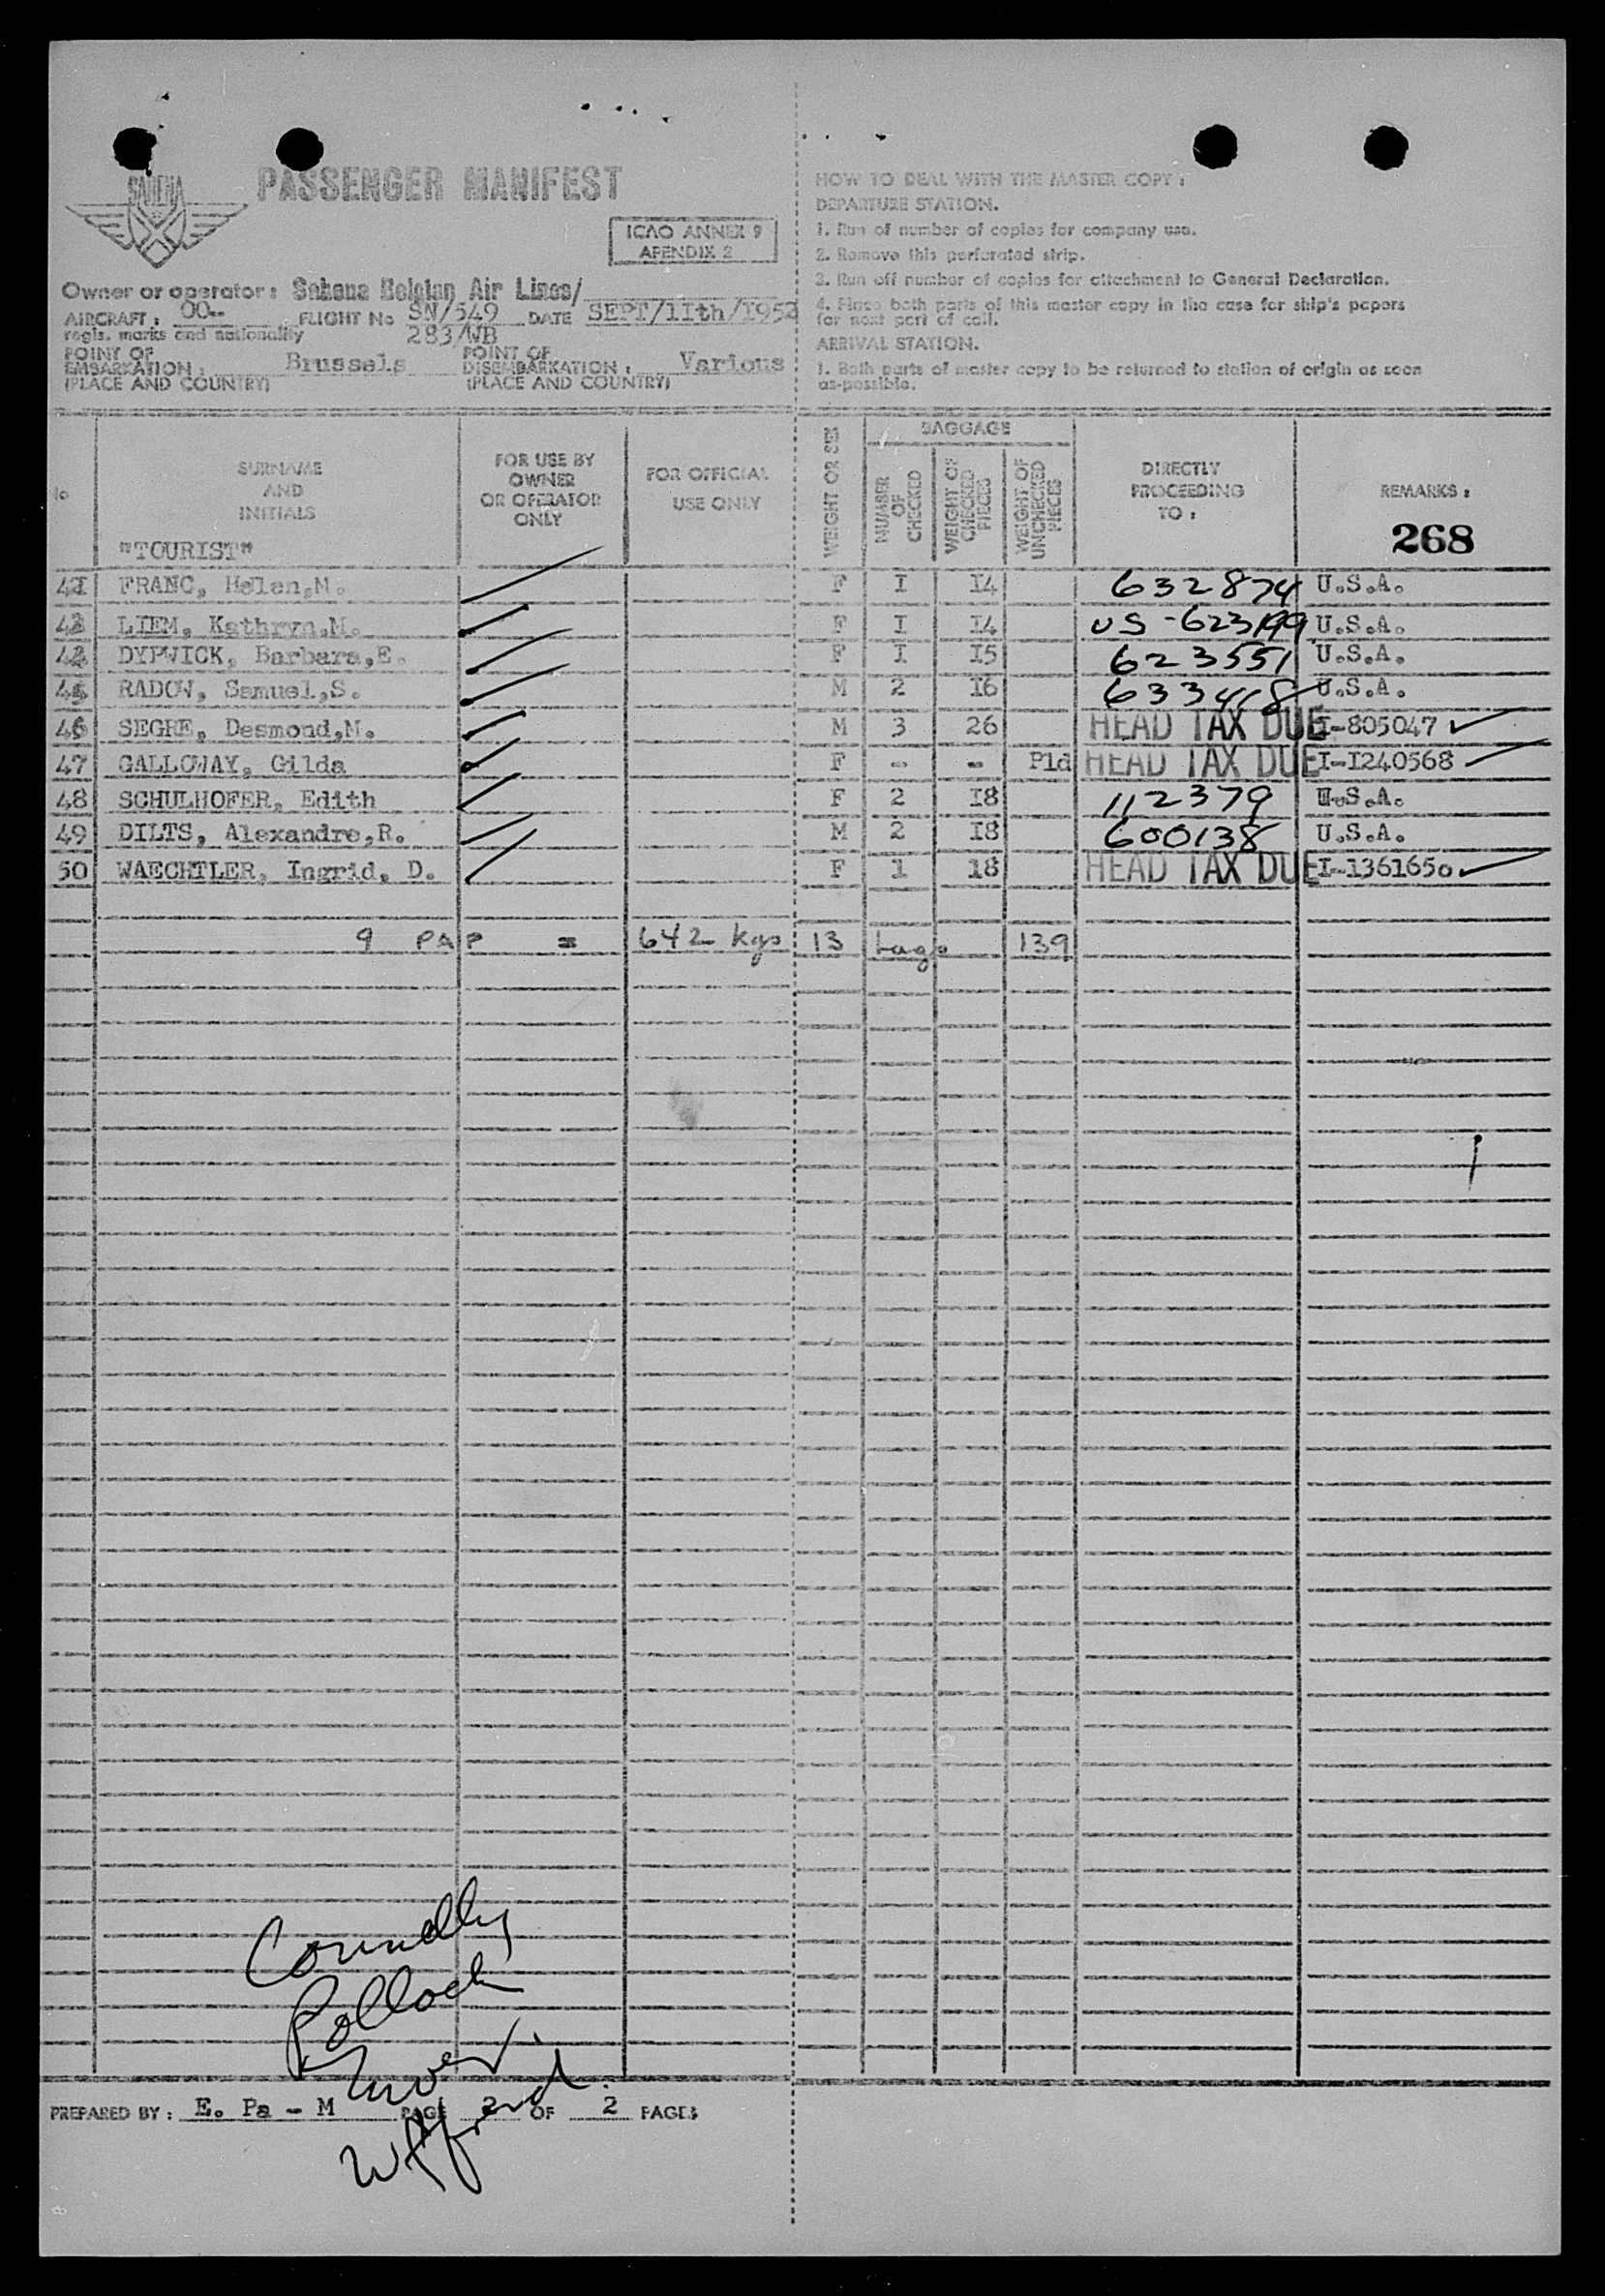 SABENA
PASSENGER MANIFEST
ICAO ANNEX 9
APENDIX 2
Owner or operator: Sabena Belgian Air Lines/
AIRCRAFT: OO-- FLIGHT No SN/549 DATE SEPT/11th/1952
regis. marks and nationality 283/WB
POINT OF EMBARKATION: Brussels POINT OF DISEMBARKATION: Various
(PLACE AND COUNTRY) (PLACE AND COUNTRY)
HOW TO DEAL WITH THE MASTER COPY:
DEPARTURE STATION.
1. Run of number of copies for company use.
2. Remove this perforated strip.
3. Run off number of copies for attachment to General Declaration.
4. Place both parts of this master copy in the case for ship's papers
for next port of call.
ARRIVAL STATION.
1. Both parts of master copy to be returned to station of origin as soon
as-possible.
No
SURNAME
AND
INITIALS
"TOURIST"
FOR USE BY
OWNER
OR OPERATOR
ONLY
FOR OFFICIAL
USE ONLY
WEIGHT OR SEX
BAGGAGE
NUMBER
OF
CHECKED
WEIGHT OF
CHECKED
PIECES
WEIGHT OF
UNCHECKED
PIECES
DIRECTLY
PROCEEDING
TO:
REMARKS:
268
FRANC, Helen,M. F I I4 632874 U.S.A.
LIEM, Kathryn,M. F I I4 US-623199 U.S.A.
DYPWICK, Barbara,E. F I I5 623551 U.S.A.
RADOW, Samuel,S. M 2 I6 633418 U.S.A.
46 SEGRE, Desmond,N. M 3 26 HEAD TAX DUE I-805047
47 GALLOWAY, Gilda F - - Pld HEAD TAX DUE I-I240568
48 SCHULHOFER, Edith F 2 I8 112379 U.S.A.
49 DILTS, Alexandre,R. M 2 I8 600138 U.S.A.
50 WAECHTLER, Ingrid, D. F 1 18 HEAD TAX DUE I-1361650
9 PAP = 642 kgs 13 bags 139
Connelly
Pollock
PREPARED BY: E. Pa - M PAGE 2 OF 2 PAGES